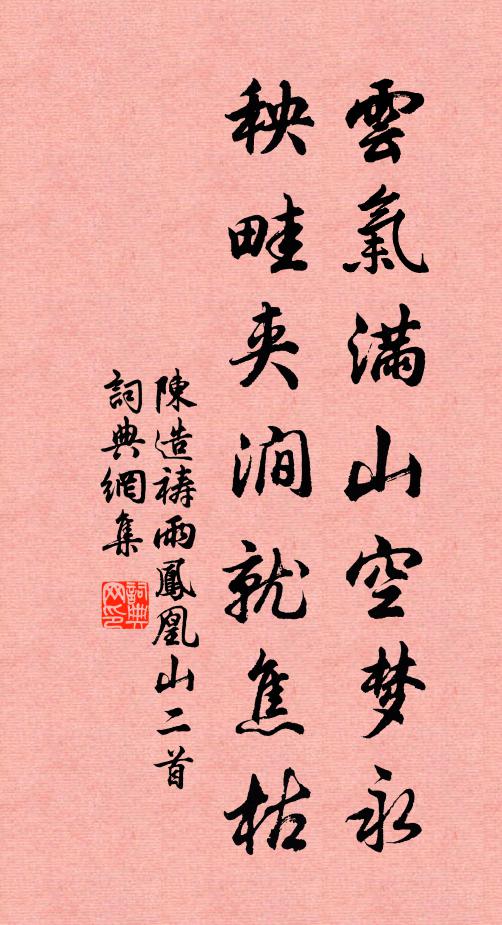 雲氣滿山空梦永
秧畦夹澗就焦枯
陳造禱雨鳳凰山二首
詞典網集
詞典
网印